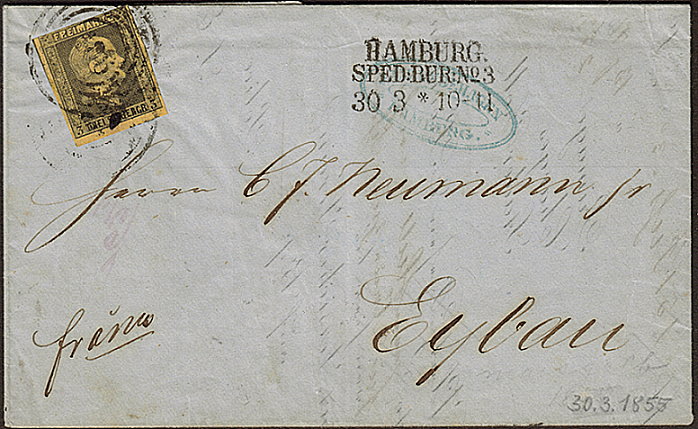 FREIMARKE
3 DREI SILBERGR. 3
HAMBURG.
SPED:BUR:No3
30 3 * 10-11
HAMBURG.
Herrn C J. Neumann jr
Eybau
franco
30.3.1855